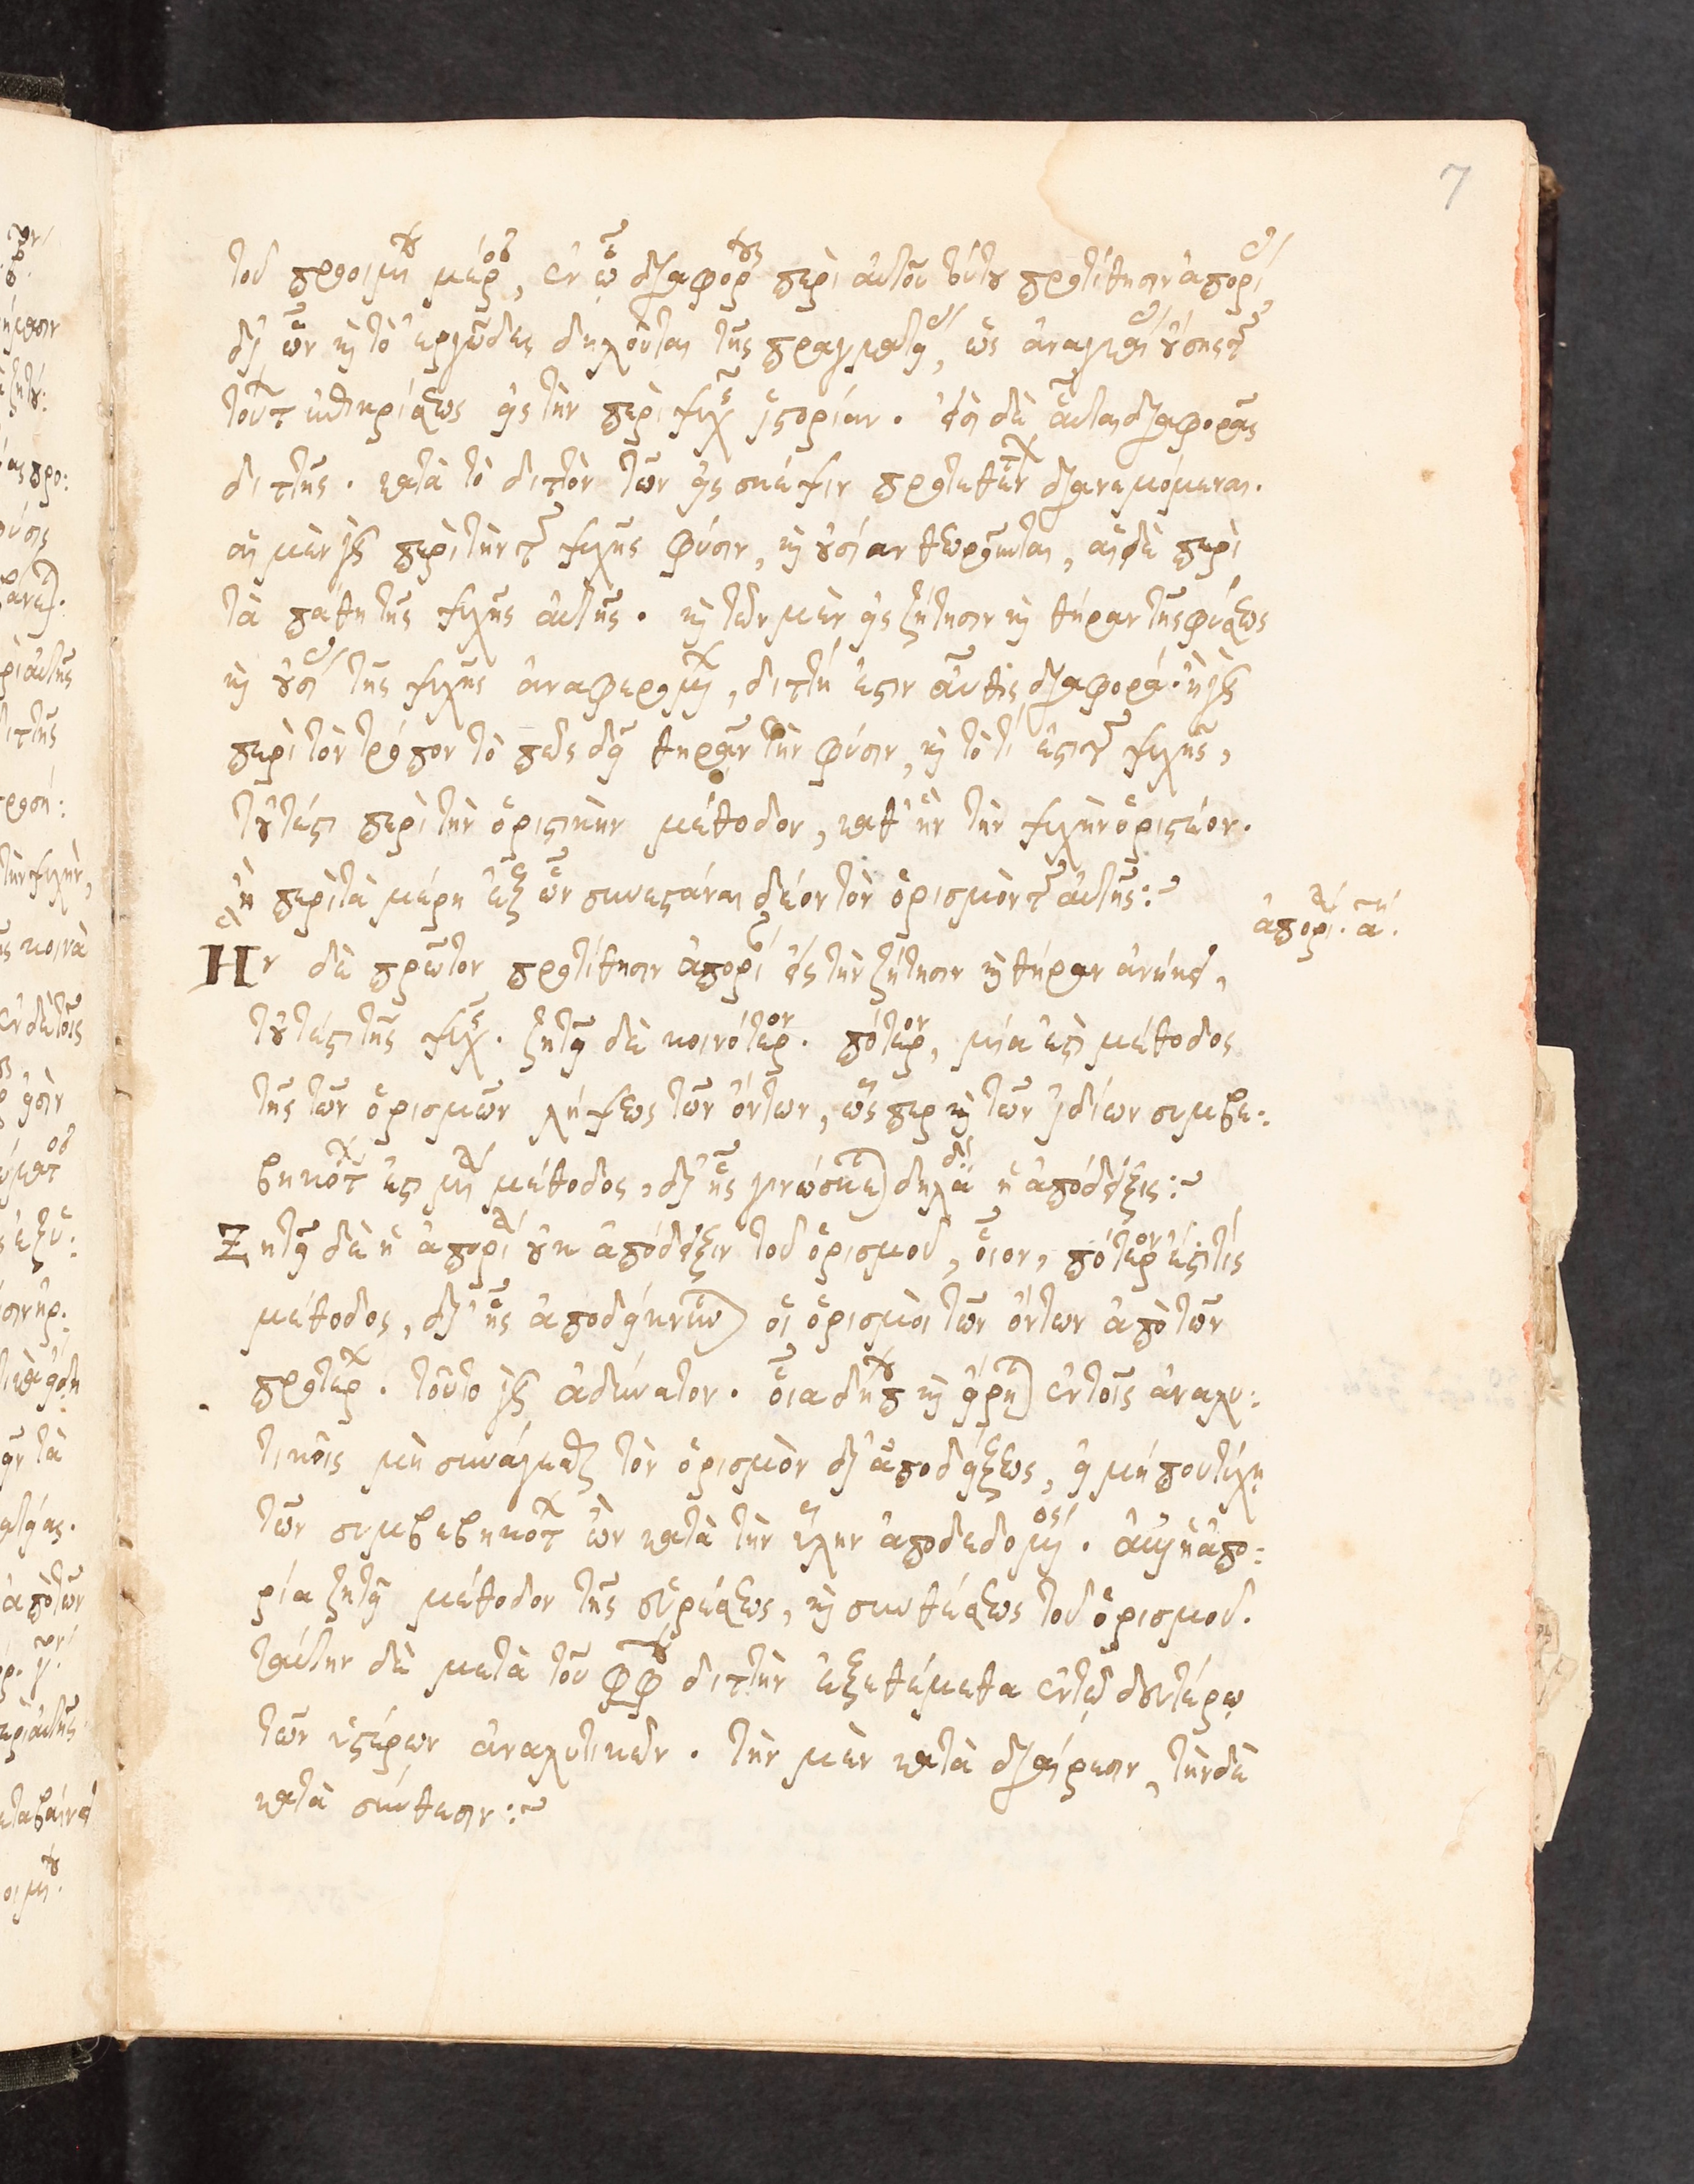 7
τοῦ προοιμίου μέρος, ἐν ᾧ διαφόρους περὶ αὐτοῦ τούτου προτίθησιν ἀπορίας
δι' ὧν καὶ τὸ ἐργῶδες δηλοῦται τῆς πραγματείας, ὡς ἀναγκαίας οὔσης τῆς
τούτων ἐπικρίσεως εἰς τὴν περὶ ψυχῆς ἱστορίαν. εἰσὶ δὲ αὗται διαφορᾶς
διττῆς. κατὰ τὸ διττὸν τῶν εἰς σκέψιν προτεθέντων διανεμόμεναι.
αἱ μὲν γὰρ περὶ τὴν τῆς ψυχῆς φύσιν, καὶ οὐσίαν θεωροῦνται, αἱ δὲ περὶ
τὰ πάθη τῆς ψυχῆς αὐτῆς. καὶ τῶν μὲν εἰς ζήτησιν καὶ θήραν τῆς φύσεως
καὶ οὐσίας τῆς ψυχῆς ἀναφερομένων, διττή ἐστιν αὖθις διαφορά. ἢ γὰρ
περὶ τὸν τρόπον τὸ πῶς δεῖ θηρᾶν τὴν φύσιν, καὶ τὸ τί ἐστι τῆς ψυχῆς,
τουτέστι περὶ τὴν ὁριστικὴν μέθοδον, καθ' ἣν τὴν ψυχὴν ὁριστέον.
ἢ περὶ τὰ μέρη ἐξ ὧν συνεστάναι δέον τὸν ὁρισμὸν τῆς αὐτῆς:~
ἀπορία. α΄.
Ην δὲ πρῶτον προτίθησιν ἀπορίαν εἰς τὴν ζήτησιν καὶ θήραν ἀνήκει,
τουτέστι τῆς ψυχῆς. ζητεῖ δὲ κοινότερον. πότερον, μία ἐστὶ μέθοδος
τῆς τῶν ὁρισμῶν λήψεως τῶν ὄντων, ὥσπερ καὶ τῶν ἰδίων συμβε:
βηκότων ἐστὶ μία μέθοδος, δι' ἧς γινώσκεται δηλαδὴ ἡ ἀπόδειξις:~
Ζητεῖ δὲ ἡ ἀπορία οὐκ ἀπόδειξιν τοῦ ὁρισμοῦ, οἷον, πότερον ἐστί τις
μέθοδος, δι' ἧς ἀποδείκνυνται οἱ ὁρισμοὶ τῶν ὄντων ἀπὸ τῶν
προτέρων. τοῦτο γὰρ ἀδύνατον. οἷα δήπου καὶ εἴρηται ἐν τοῖς ἀναλυ:
τικοῖς μὴ συνάγεσθαι τὸν ὁρισμὸν δι' ἀποδείξεως, εἰ μήπου τύχῃ
τῶν συμβεβηκότων ὢν κατὰ τὴν ὕλην ἀποδεδομένος. ἀλλ' ἡ ἀπο:
ρία ζητεῖ μέθοδον τῆς εὑρέσεως, καὶ συνθέσεως τοῦ ὁρισμοῦ.
ταύτην δὲ μετὰ τοῦ φφου διττὴν ἐξεθέμεθα ἐν τῷ δευτέρῳ
τῶν ὑστέρων ἀναλυτικῶν. τὴν μὲν κατὰ διαίρεσιν, τὴν δὲ
κατὰ σύνθεσιν:~